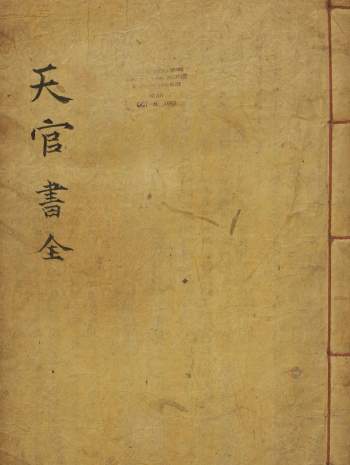 天官書全